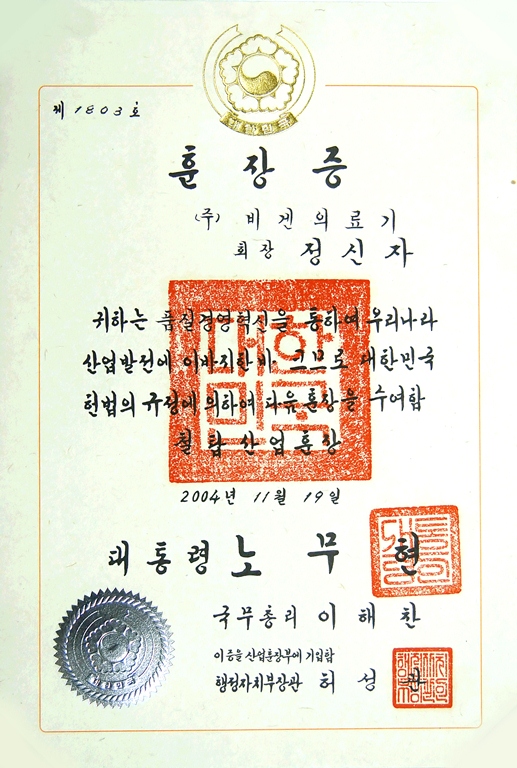 대한민국
제 1803 호
훈장증
(주) 비겐의료기
회장 정신자
귀하는 품질경영혁신을 통하여 우리나라
산업발전에 이바지한바 크므로 대한민국
헌법의 규정에 의하여 다음 훈장을 수여함
철탑산업훈장
대한민국
2004년 11월 19일
대통령 노무현
국무총리 이해찬
이 증을 산업훈장부에 기입함
행정자치부장관 허성관
대한민국